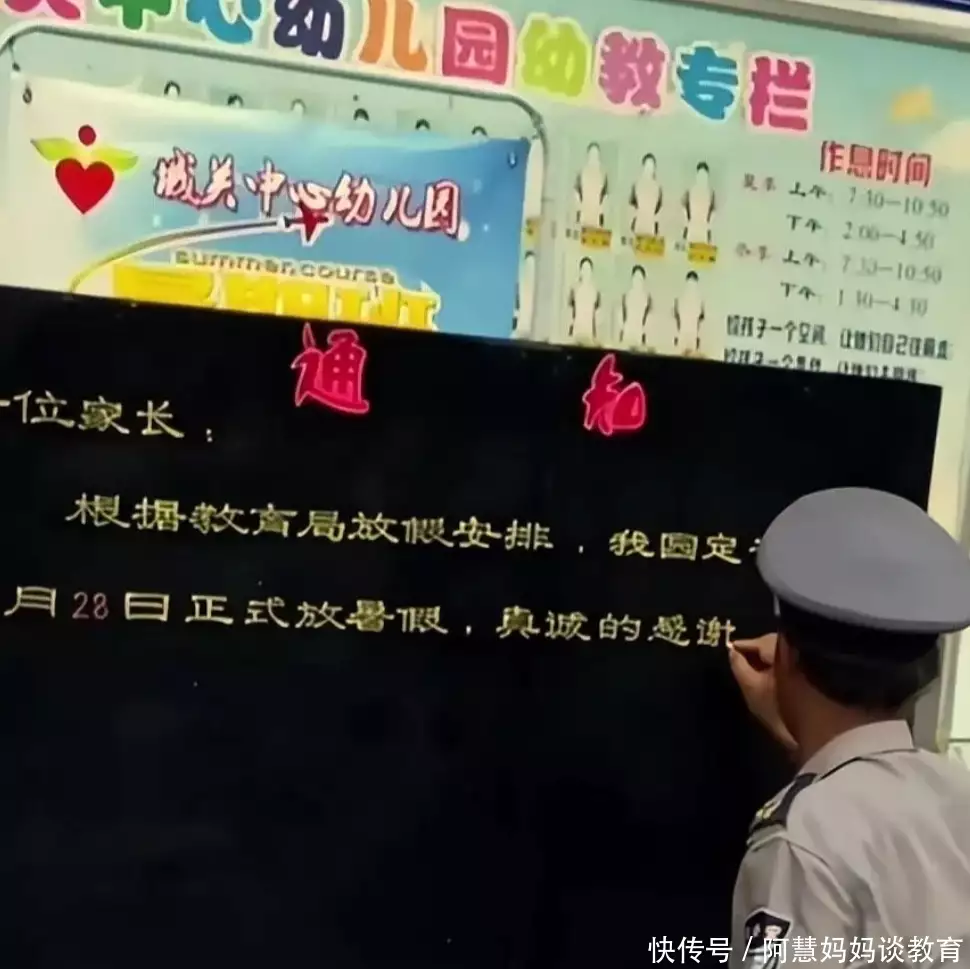 中心幼儿园幼教专栏
城关中心幼儿园
summer course
作息时间
夏季 上午: 7:30—10:50
下午: 2:00—4:50
冬季 上午: 7:30—10:50
下午: 1:30—4:30
给孩子一个空间 让他们自己往前走
通知
位家长:
根据教育局放假安排,我园定
月28日正式放暑假,真诚的感谢
快传号/阿慧妈妈谈教育